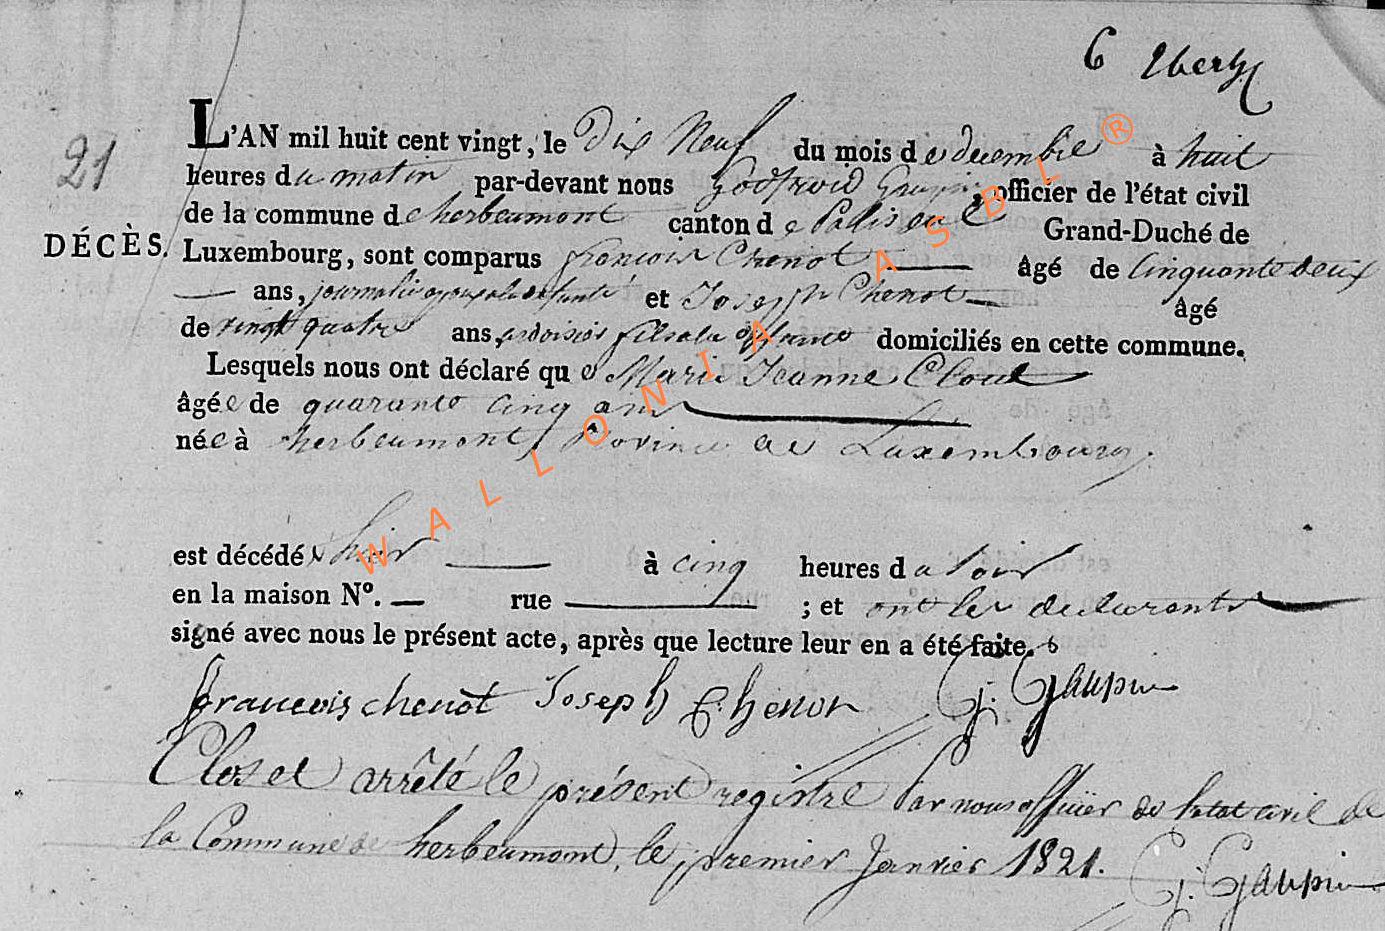 6
21
L'AN mil huit cent vingt, le Dix Neuf du mois de decembre à huit
heures du matin par-devant nous Godfroid Gaupin, officier de l'état civil
de la commune de herbeumont canton de Paliseul Grand-Duché de
DÉCÈS. Luxembourg, sont comparus francois Chenot âgé de Cinquante deux
ans, journalier epoux de la defunte et Joseph Chenot âgé
de vingt quatre ans, ardoisier fils de la defunte domiciliés en cette commune.
Lesquels nous ont déclaré que Marie Jeanne
âgée de quarante cinq ans
née à herbeumont province de Luxembourg.
est décédée hier à cinq heures du soir
en la maison N°. rue ; et ont les declarants
signé avec nous le présent acte, après que lecture leur en a été faite.
francois chenot Joseph Chenot G. Gaupin
Clos et arrêté le présent registre par nous officier de l'etat civil de
la Commune de herbeumont, le premier Janvier 1821.
G. Gaupin
WALLONIA ASBL ®